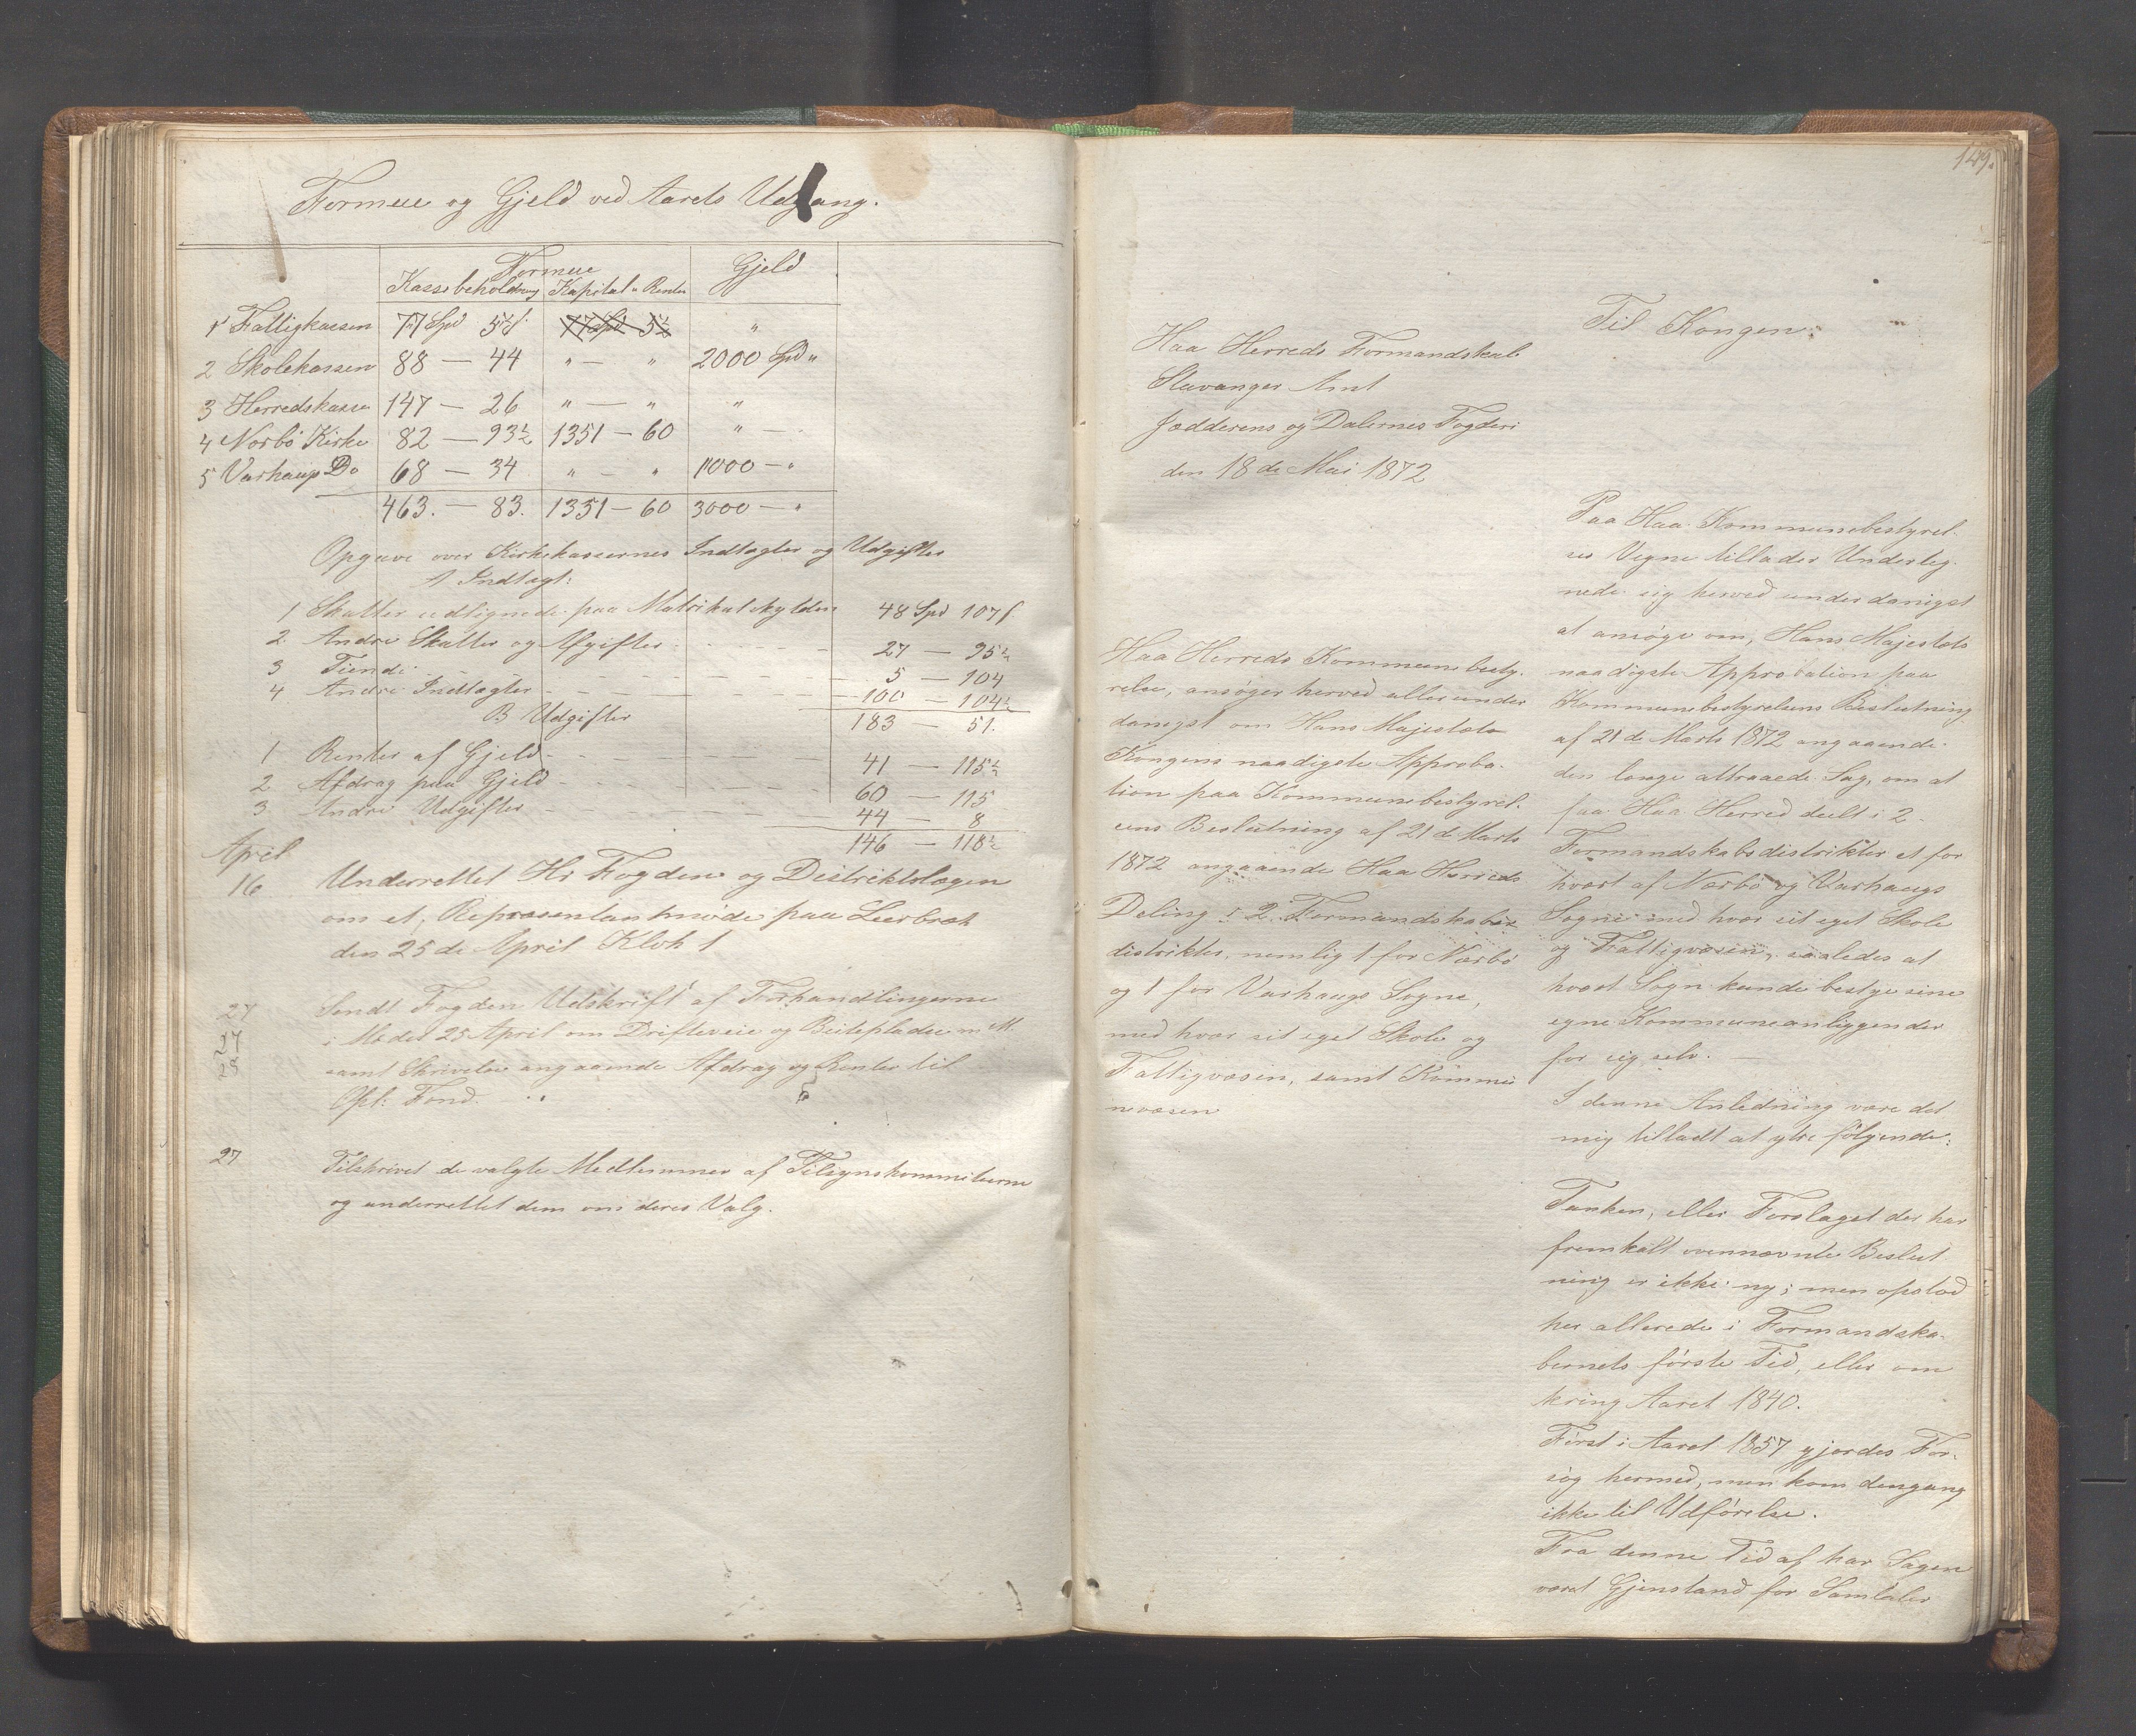 Formue og Gjeld ved Aarets Udgang.
Formue Gjeld
Kassebeholdning Kapital & Renter
1 Fattigkassen 77 Spd 5½ s. 77 Spd 5½ "
2 Skolekassen 88 — 44 " — " 2000 Spd "
3 Herredskasse 147 — 26 " — " "
4 Norbö Kirke 82 — 93½ 1351 — 60 " —
5 Varhaug Do 68 — 34 " — " 1000 — "
463. — 83. 1351 — 60 3000 — "
Opgave over Kirkekassernes Indtægter og Udgifter
A Indtægt:
1 Skatter udlignede paa Matrikulskylden 48 Spd 107 s.
2 Andre Skatter og Afgifter 27 — 95½
3 Tiende 5 — 104
4 Andre Indtægter 100 — 104½
B Udgifter 183 — 51.
1 Renter af Gjeld 41 — 115½
2 Afdrag paa Gjeld 60 — 115
3 Andre Udgifter 44 — 8
146 — 118½
April
16 Underrettet Hr Fogden og Distriktslægen
om et Repræsentantmöde paa Leerbræk
den 25 de April Klok 1
27 Sendt Fogden Udskrift af Forhandlingerne
27 i Mödet 25 April om Drifteveie og Beitepladse m M.
28 samt Skrivelse angaaende Afdrag og Renter til
Opl: Fond.
27 Tilskrevet de valgte Medlemmer af Tilsynskommiteerne
og underrettet dem om deres Valg.
149.
Til Kongen.
Haa Herreds Formandskab
Stavanger Amt
Jædderens og Dalernes Fogderi
den 18 de Mai 1872
Haa Herreds Kommunebesty-
relse, ansöger herved allerunder
danigst om Hans Majestæts
Kongens naadigste Approba-
tion paa Kommunebestyrel-
sens Beslutning af 21 de Marts
1872 angaaende Haa Herreds
Deling i 2. Formandskabs
distrikter, nemlig 1 for Nærbö
og 1 for Varhaugs Sogne,
med hver sit eget Skole og
Fattigvæsen, samt Kommu
nevæsen
Paa Haa Kommunebestyrel-
ses Vegne tillader Underteg-
nede sig herved underdanigst
at ansöge om, Hans Majestæts
naadigste Approbation paa
Kommunebestyrelsens Beslutning
af 21 de Marts 1872 angaaende
den længe attraaede Sag, om at
faa Haa Herred deelt i 2
Formandskabsdistrikter et for
hvert af Nærbö og Varhaugs
Sogne med hver sit eget Skole
og Fattigvæsen, saaledes at
hvert Sogn kunde bestyre sine
egne Kommuneanliggender
for sig selv. —
I denne Anledning være det
mig tilladt at ytre fölgende:
Tanken, eller Forslaget der har
fremkalt ovennævnte Beslut
ning er ikke ny; men opstod
her allerede i Formandska-
bernets förste Tid, eller om
kring Aaret 1840.
Först i Aaret 1857 gjordes For-
sög hermed, men kom dengang
ikke til Udförelse.
Fra denne Tid af har Sagen
været Gjenstand for Samtaler